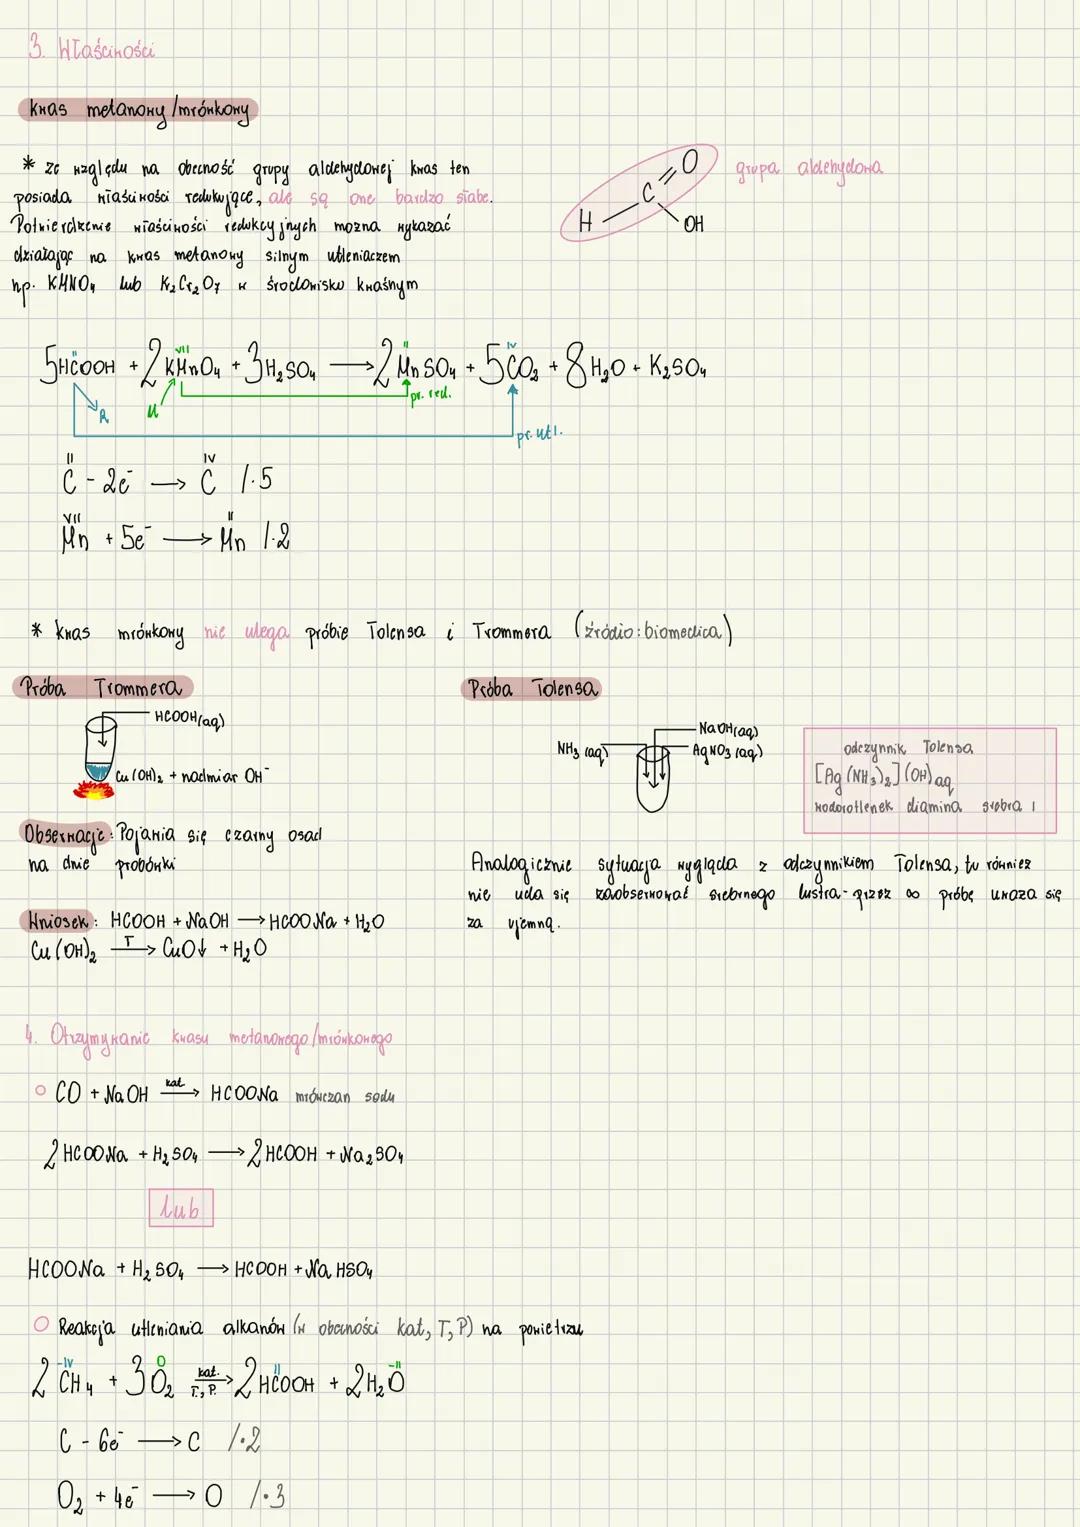 3. Właściwości
kwas metanowy/mrówkowy
* ze względu na obecność grupy aldehydowej kwas ten
posiada właściwości redukujące, ale są one bardzo słabe.
Potwierdzenie właściwości redukcyjnych można wykazać
działając na kwas metanowy silnym utleniaczem
np. KMNO₄ lub K₂Cr₂O₇ w środowisku kwaśnym
O
H C
OH
grupa aldehydowa
II VII II IV
5HCOOH + 2KMnO₄ + 3H₂SO₄ → 2MnSO₄ + 5CO₂ + 8H₂O + K₂SO₄
R U pr. red.
pr. utl.
II IV
C - 2e⁻ → C /·5
VII II
Mn + 5e⁻ → Mn /·2
* kwas mrówkowy nie ulega próbie Tolensa i Trommera (źródło: biomedica)
Próba Trommera
HCOOH(aq)
Cu(OH)₂ + nadmiar OH⁻
Obserwacje: Pojawia się czarny osad
na dnie probówki
Wniosek: HCOOH + NaOH → HCOONa + H₂O
Cu(OH)₂ T→ CuO↓ + H₂O
Próba Tolensa
NH₃ (aq)
NaOH(aq)
AgNO₃ (aq)
odczynnik Tolensa
[Ag(NH₃)₂](OH)aq
wodorotlenek diamina srebra I
Analogicznie sytuacja wygląda z odczynnikiem Tolensa, tu również
nie uda się zaobserwować srebrnego lustra - przez co próbę uważa się
za ujemną.
4. Otrzymywanie kwasu metanowego/mrówkowego
CO + NaOH kat.→ HCOONa mrówczan sodu
2HCOONa + H₂SO₄ → 2HCOOH + Na₂SO₄
lub
HCOONa + H₂SO₄ → HCOOH + NaHSO₄
Reakcja utleniania alkanów (w obecności kat, T, P) na powietrzu
-IV O II -II
2CH₄ + 3O₂ kat. T., P.→ 2HCOOH + 2H₂O
C - 6e⁻ → C /·2
O₂ + 4e⁻ → O /·3